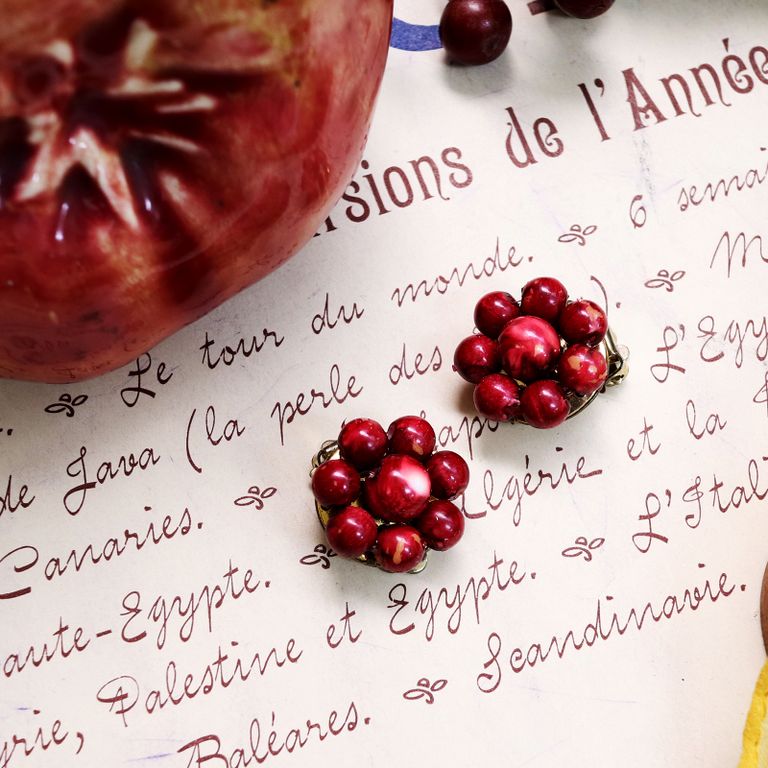 rsions de l'Année
Le tour du monde. 6 semai
de Java (la perle des ). M
Canaries. Japo L'Egy
aute-Egypte. Algérie et la
yrie, Palestine et Egypte. L'Itali
Baléares. Scandinavie.